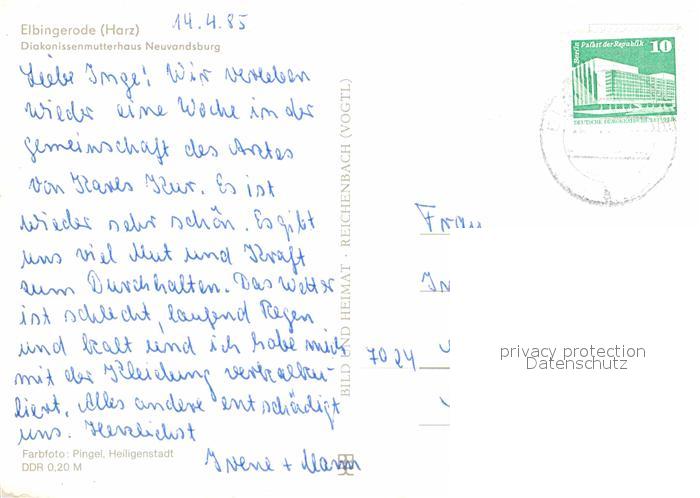 Elbingerode (Harz)
Diakonissenmutterhaus Neuvandsburg
14.4.85
Liebe Inge! Wir verleben
wieder eine Woche in der
gemeinschaft des Arztes
von Karls Kur. Es ist
wieder sehr schön. Es gibt
uns viel Mut und Kraft
zum Durchhalten. Das Wetter
ist schlecht, laufend Regen
und kalt und ich habe mich
mit der Kleidung verkalku-
liert. Alles andere entschädigt
uns. Herzlichst
Irene + Mann
Farbfoto: Pingel, Heiligenstadt
DDR 0,20 M
BILD UND HEIMAT · REICHENBACH (VOGTL)
Berlin Palast der Republik 10
DEUTSCHE DEMOKRATISCHE REPUBLIK
Frau
In
7024
privacy protection
Datenschutz